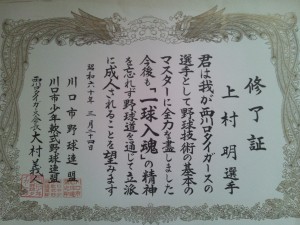 修了証
上村 明 選手
君は我が西川口タイガースの
選手として野球技術の基本の
マスターに全力を盡しました
今後も「一球入魂」の精神
を忘れず野球道を通じて立派
に成人されることを望みます
昭和六十年 三月二十四日
川口市野球連盟
川口市少年軟式野球連盟
西川口タイガース会長 大村義久